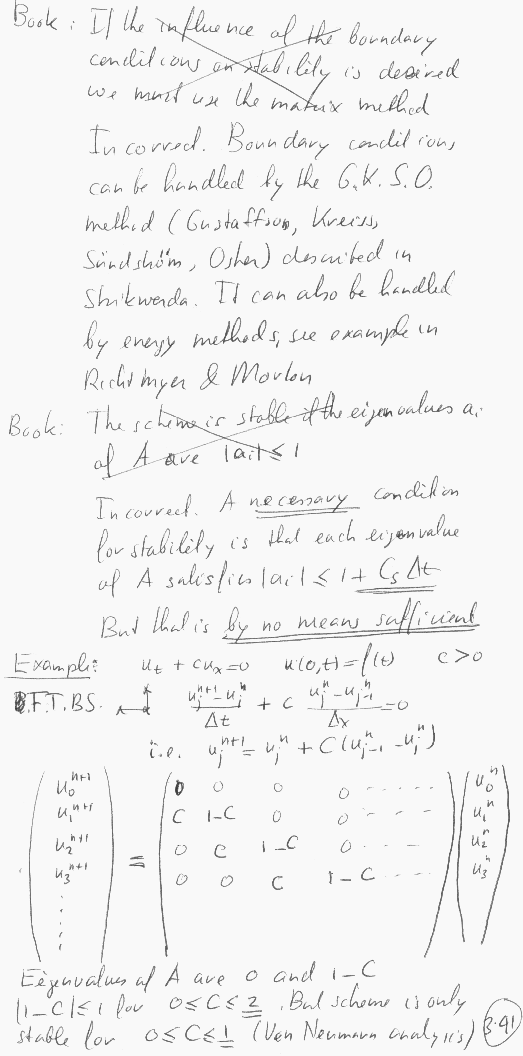 Book: If the influence of the boundary
conditions on stability is desired
we must use the matrix method
Incorrect. Boundary conditions
can be handled by the G.K.S.O.
method (Gustaffson, Kreiss,
Sündshöm, Osher) described in
Strikwerda. It can also be handled
by energy methods, see example in
Richtmyer & Morton
Book: The scheme is stable if the eigenvalues ai
of A are |ai| ≤ 1
Incorrect. A necessary condition
for stability is that each eigenvalue
of A satisfies |ai| ≤ 1 + Cs Δt
But that is by no means sufficient
Example: ut + cux = 0 u(0,t) = f(t) c>0
F.T.B.S. (uj^n+1 - uj^n)/Δt + c (uj^n - uj-1^n)/Δx = 0
i.e. uj^n+1 = uj^n + C(uj-1^n - uj^n)
u0^n+1 0 0 0 0 ----- u0^n
u1^n+1 C 1-C 0 0 ---- u1^n
u2^n+1 = 0 C 1-C 0 ---- u2^n
u3^n+1 0 0 C 1-C ---- u3^n
Eigenvalues of A are 0 and 1-C
|1-C| ≤ 1 for 0≤C≤2. But scheme is only
stable for 0≤C≤1 (Von Neumann analysis) 3.41